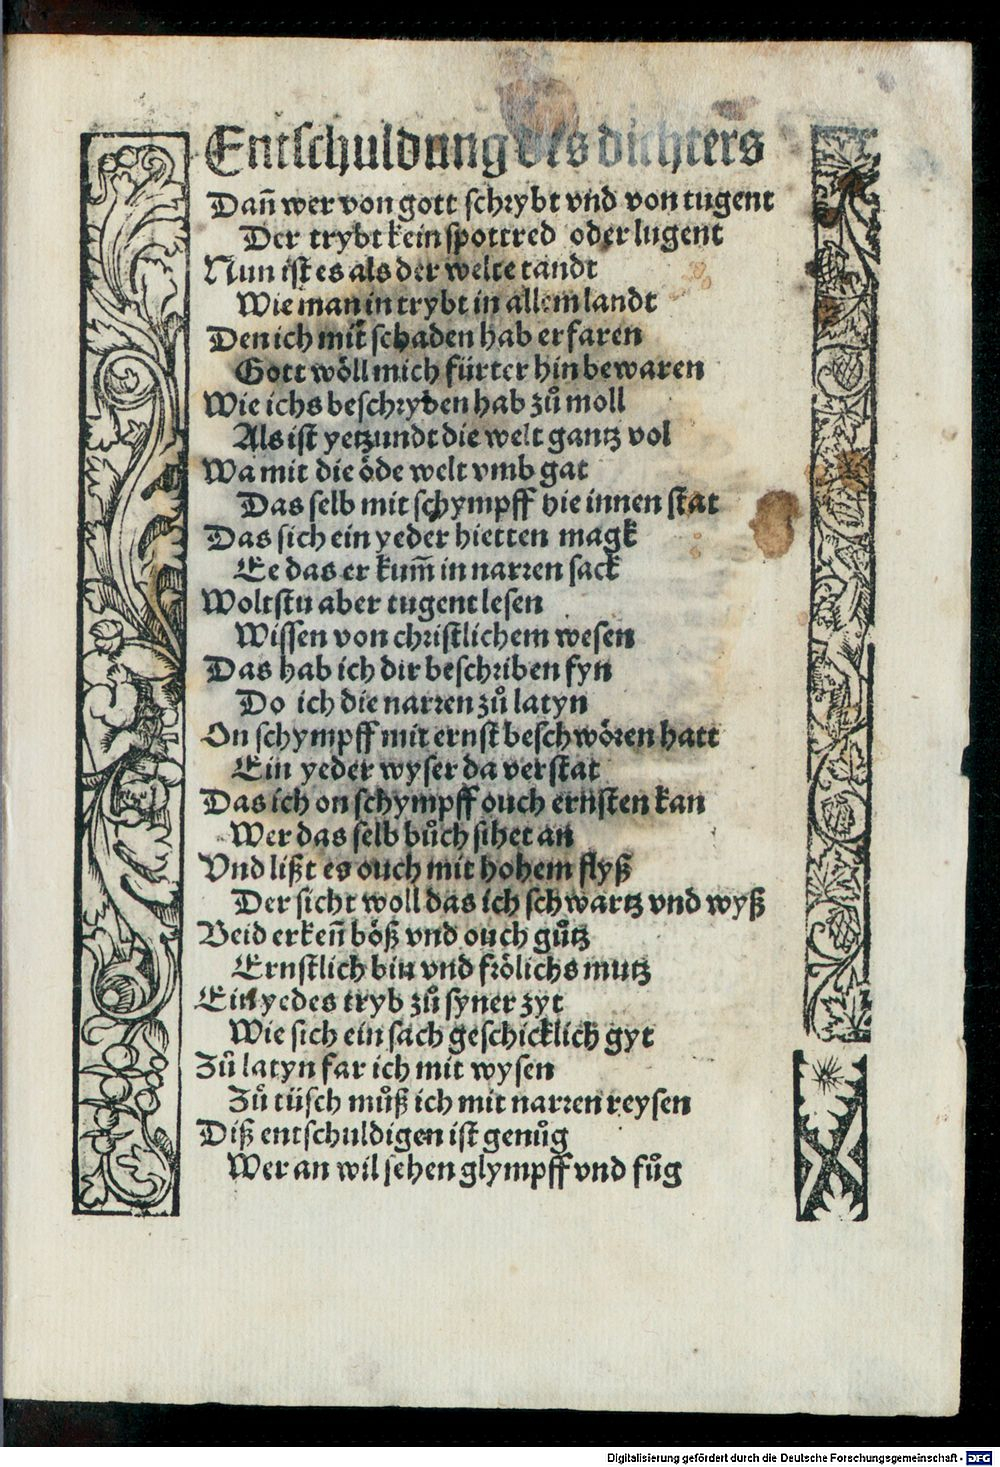 Entschuldung des dichters
Dañ wer von gott schrybt vnd von tugent
Der trybt kein spottred oder lugent
Nun ist es als der welte tandt
Wie man in trybt in allem landt
Den ich mit schaden hab erfaren
Gott wöll mich fürter hin bewaren
Wie ichs beschryben hab zů moll
Als ist yetzundt die welt gantz vol
Wa mit die öde welt vmb gat
Das selb mit schympff hie innen stat
Das sich ein yeder hietten magk
Ee das er kum̃ in narren sack
Woltstu aber tugent lesen
Wissen von christlichem wesen
Das hab ich dir beschriben fyn
Do ich die narren zů latyn
On schympff mit ernst beschwören hatt
Ein yeder wyser da verstat
Das ich on schympff ouch ernsten kan
Wer das selb bůch sihet an
Vnd lißt es ouch mit hohem flyß
Der sicht woll das ich schwartz vnd wyß
Beid erkeñ böß vnd ouch gůtz
Ernstlich bin vnd frölichs mutz
Ein yedes tryb zů syner zyt
Wie sich ein sach geschicklich gyt
Zů latyn far ich mit wysen
Zů tüsch můß ich mit narren reysen
Diß entschuldigen ist genůg
Wer an wil sehen glympff vnd fůg
Digitalisierung gefördert durch die Deutsche Forschungsgemeinschaft - DFG